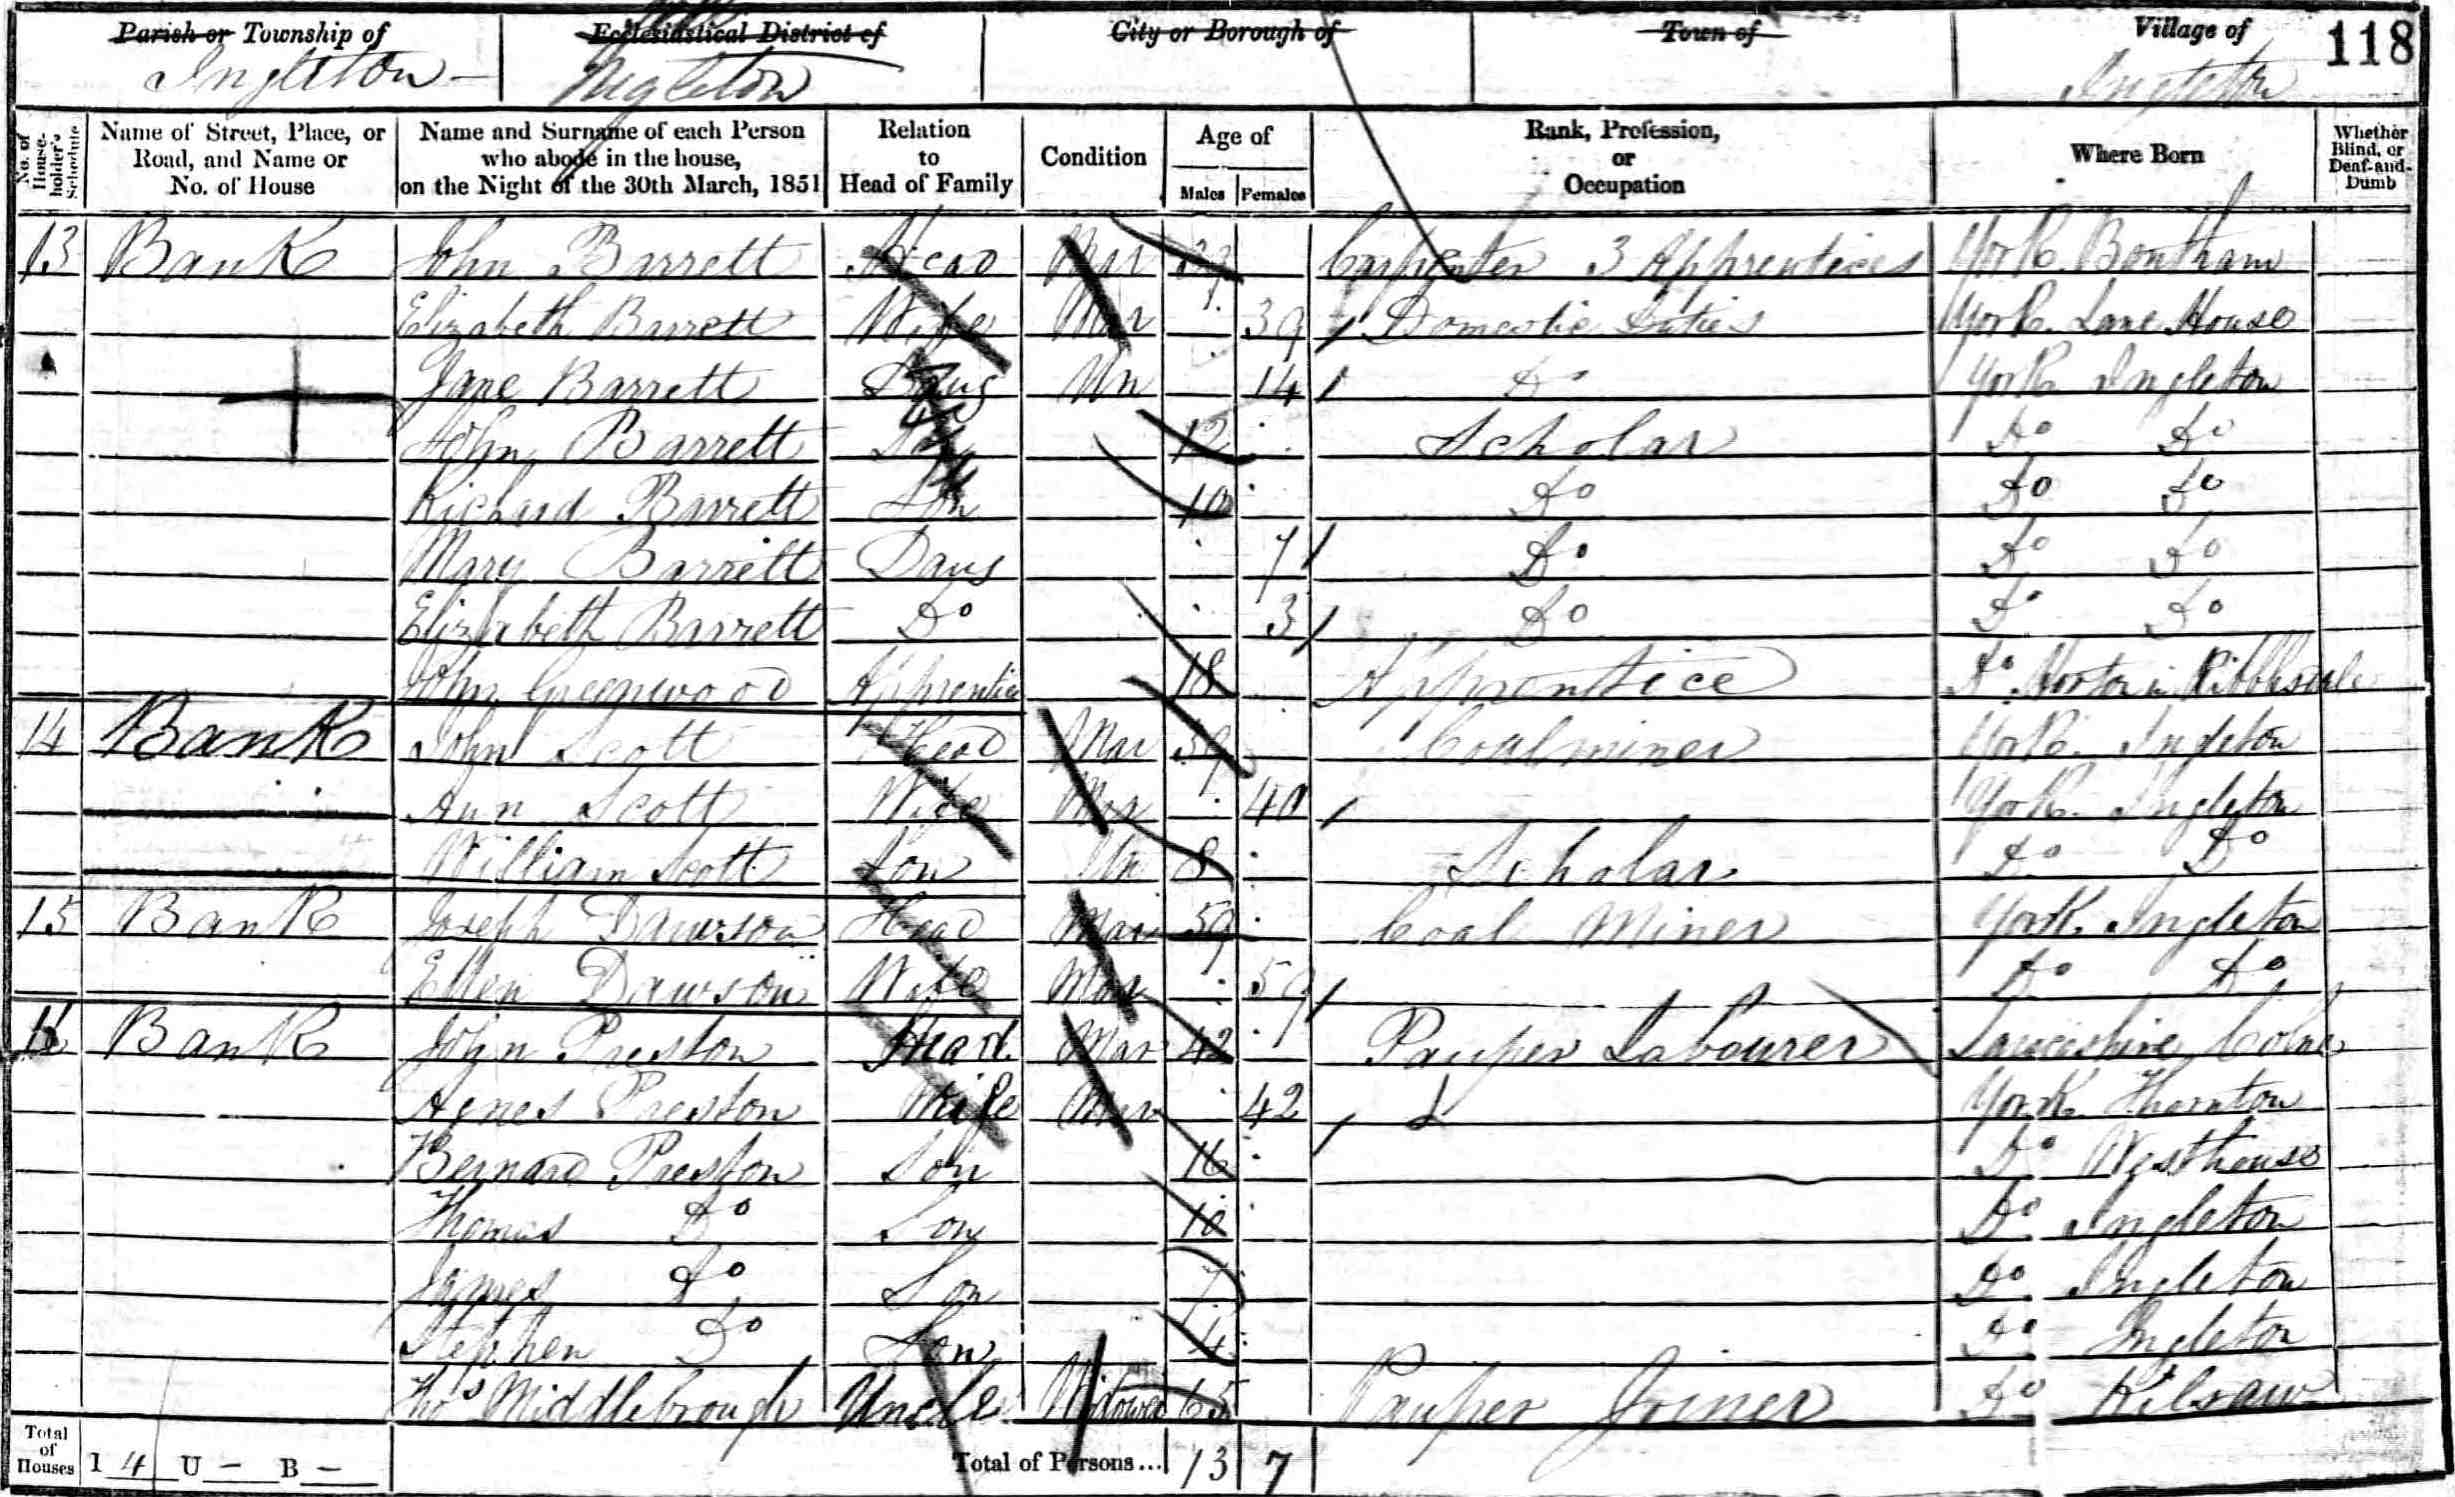 Parish or Township of Ecclesiastical District of City or Borough of Town of Village of 118
Ingleton Ingleton Ingleton
No. of House-holder's Schedule Name of Street, Place, or Road, and Name or No. of House Name and Surname of each Person who abode in the house, on the Night of the 30th March, 1851 Relation to Head of Family Condition Age of Males Females Rank, Profession, or Occupation Where Born Whether Blind, or Deaf-and-Dumb
13 Bank John Barrett Head Mar 39 Carpenter 3 Apprentices York Bentham
Elizabeth Barrett Wife Mar 39 Domestic Duties York Lane House
Jane Barrett Daug Un 14 Do York Ingleton
John Barrett Son 12 Scholar Do Do
Richard Barrett Son 10 Do Do Do
Mary Barrett Daug 7 Do Do Do
Elizabeth Barrett Do 3 Do Do Do
John Greenwood Apprentice 18 Apprentice Do Horton in Ribblesdale
14 Bank John Scott Head Mar 39 Coalminer York Ingleton
Ann Scott Wife Mar 40 York Ingleton
William Scott Son Un 8 Scholar Do Do
15 Bank Joseph Dawson Head Mar 59 Coal Miner York Ingleton
Ellen Dawson Wife Mar 59 Do Do
16 Bank John Preston Head Mar 42 Pauper Labourer Lancashire Colne
Agnes Preston Wife Mar 42 York Thornton
Bernard Preston Son 16 Do Westhouse
Thomas Do Son 10 Do Ingleton
James Do Son 7 Do Ingleton
Stephen Do Son 4 Do Ingleton
Thos Middlebrough Uncle Widower 65 Pauper Joiner Do
Total of Houses 1 4 U – B – Total of Persons... 13 7